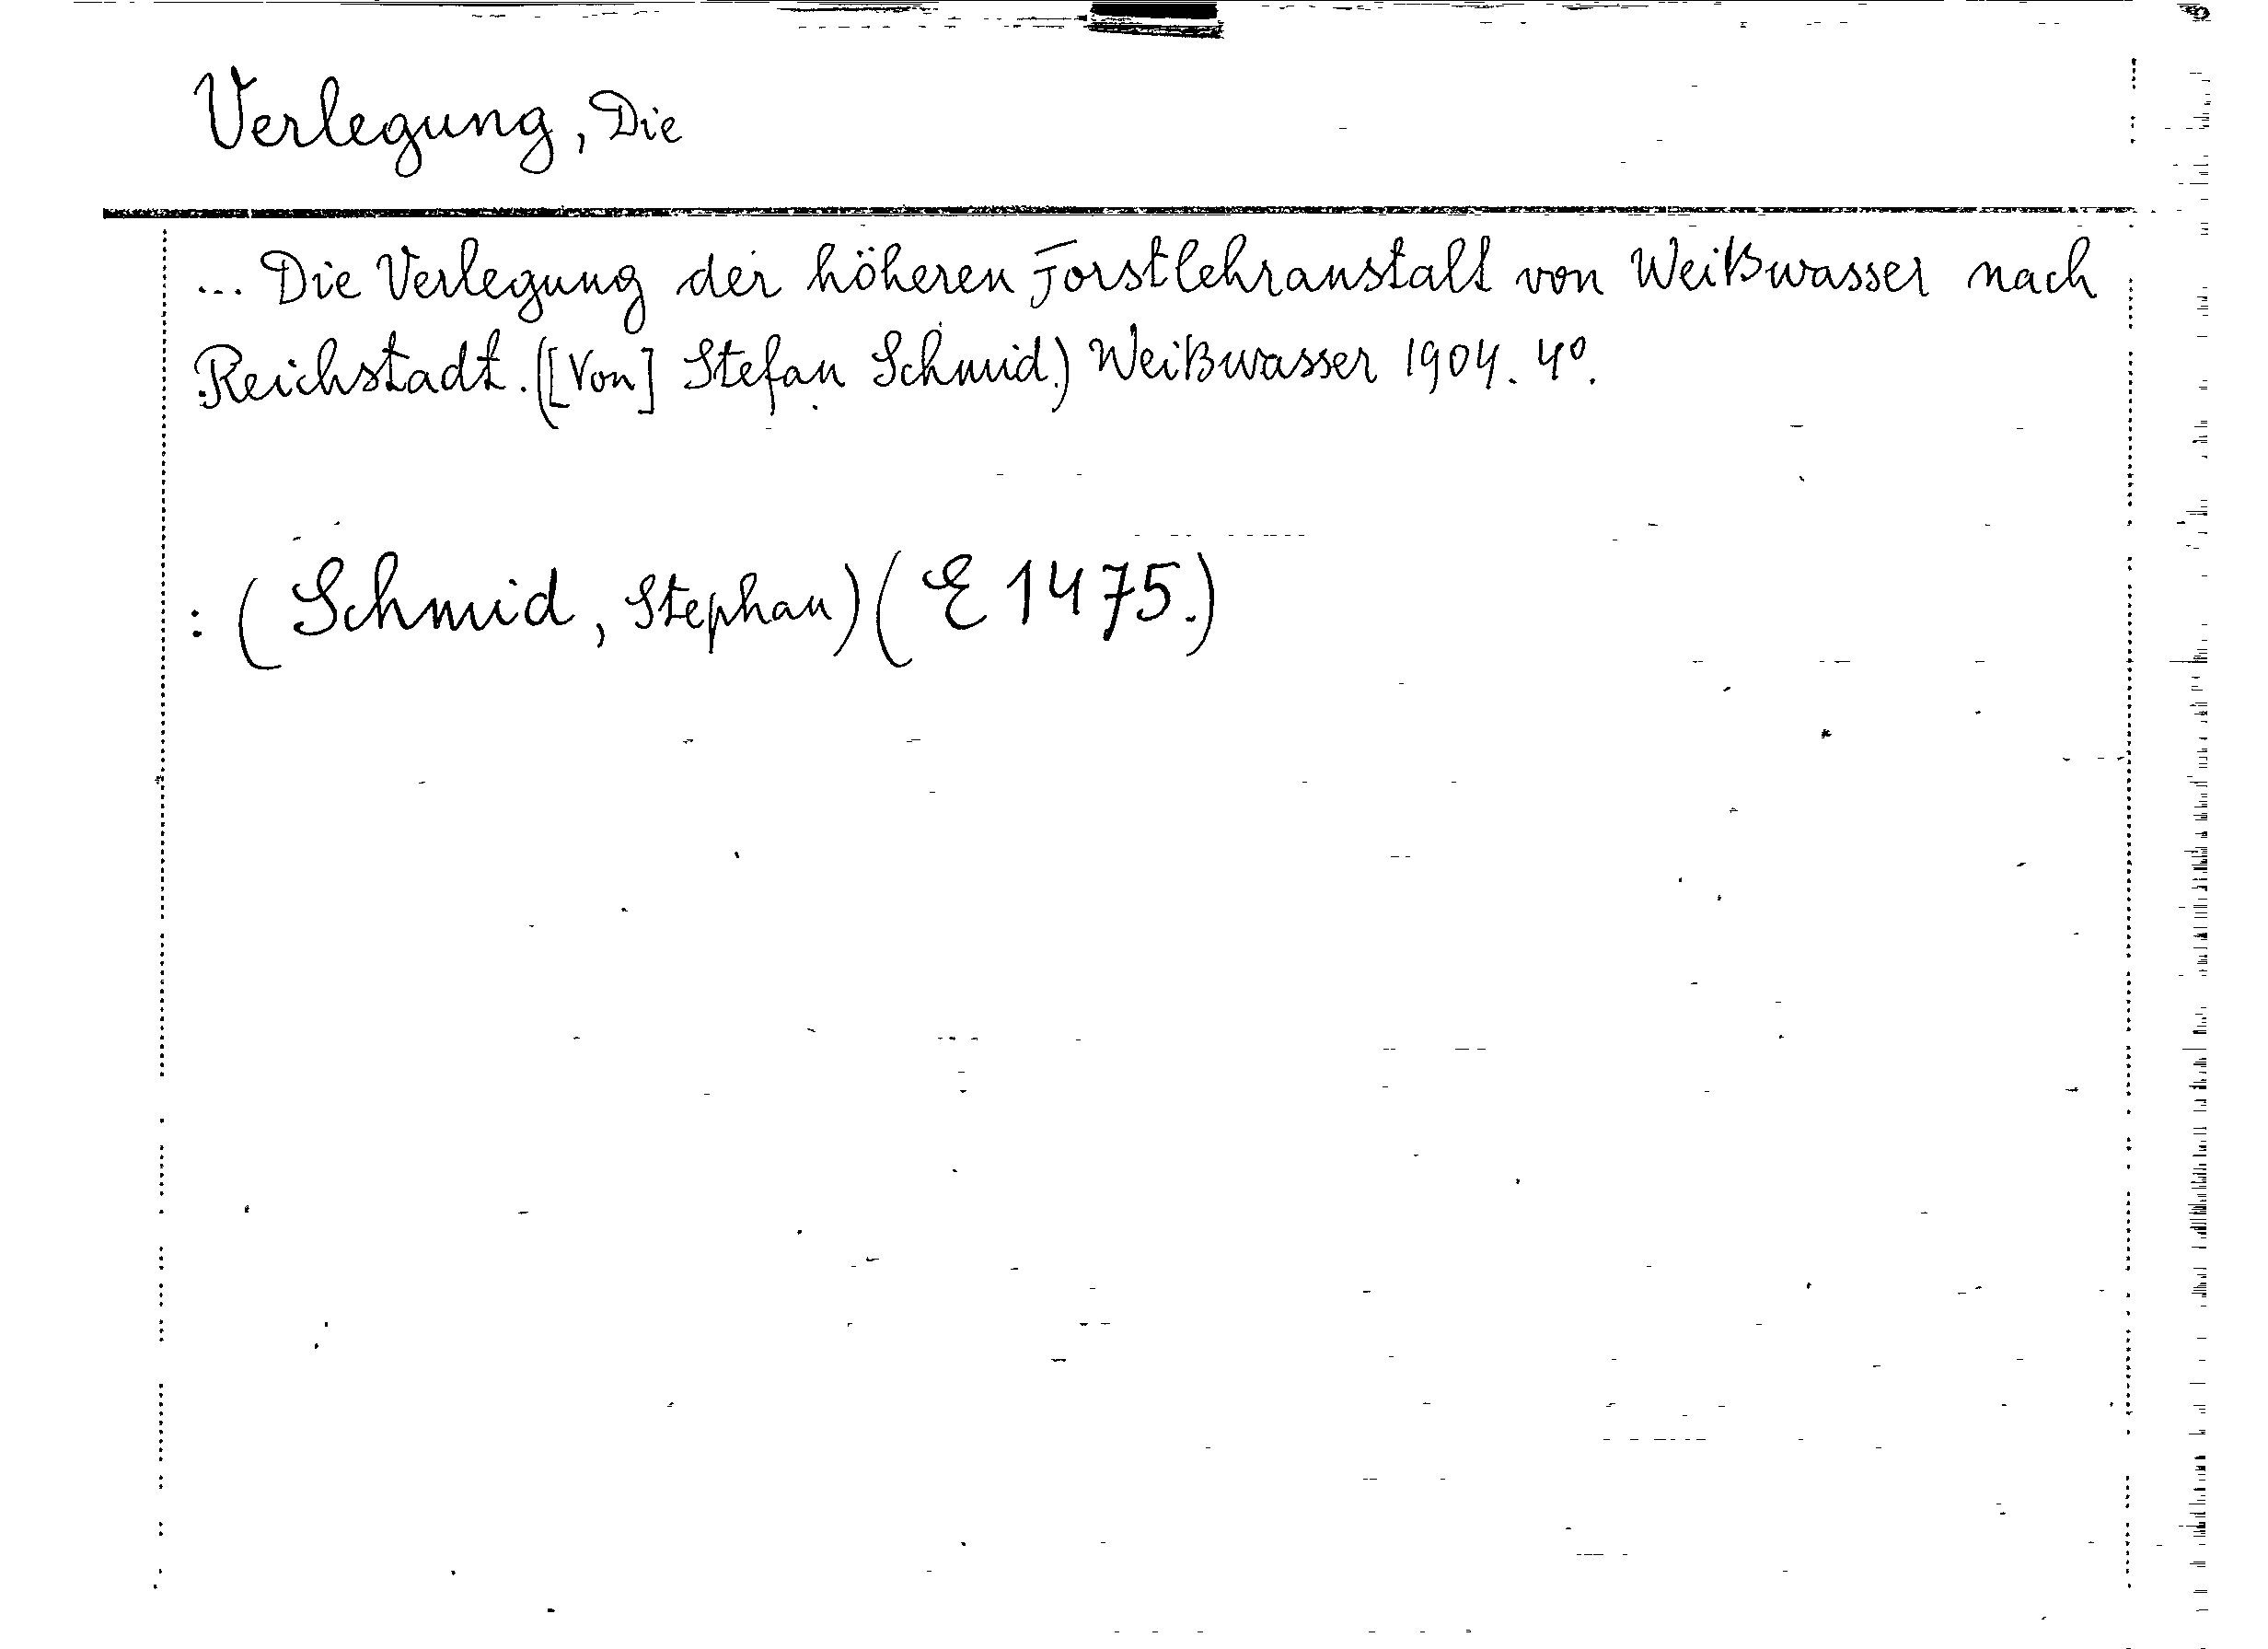 Verlegung, Die
... Die Verlegung der höheren Forstlehranstalt von Weißwasser nach
Reichstadt. ([Von] Stefan Schmid.) Weißwasser 1904. 4°.
: (Schmid, Stephan) (E 1475.)